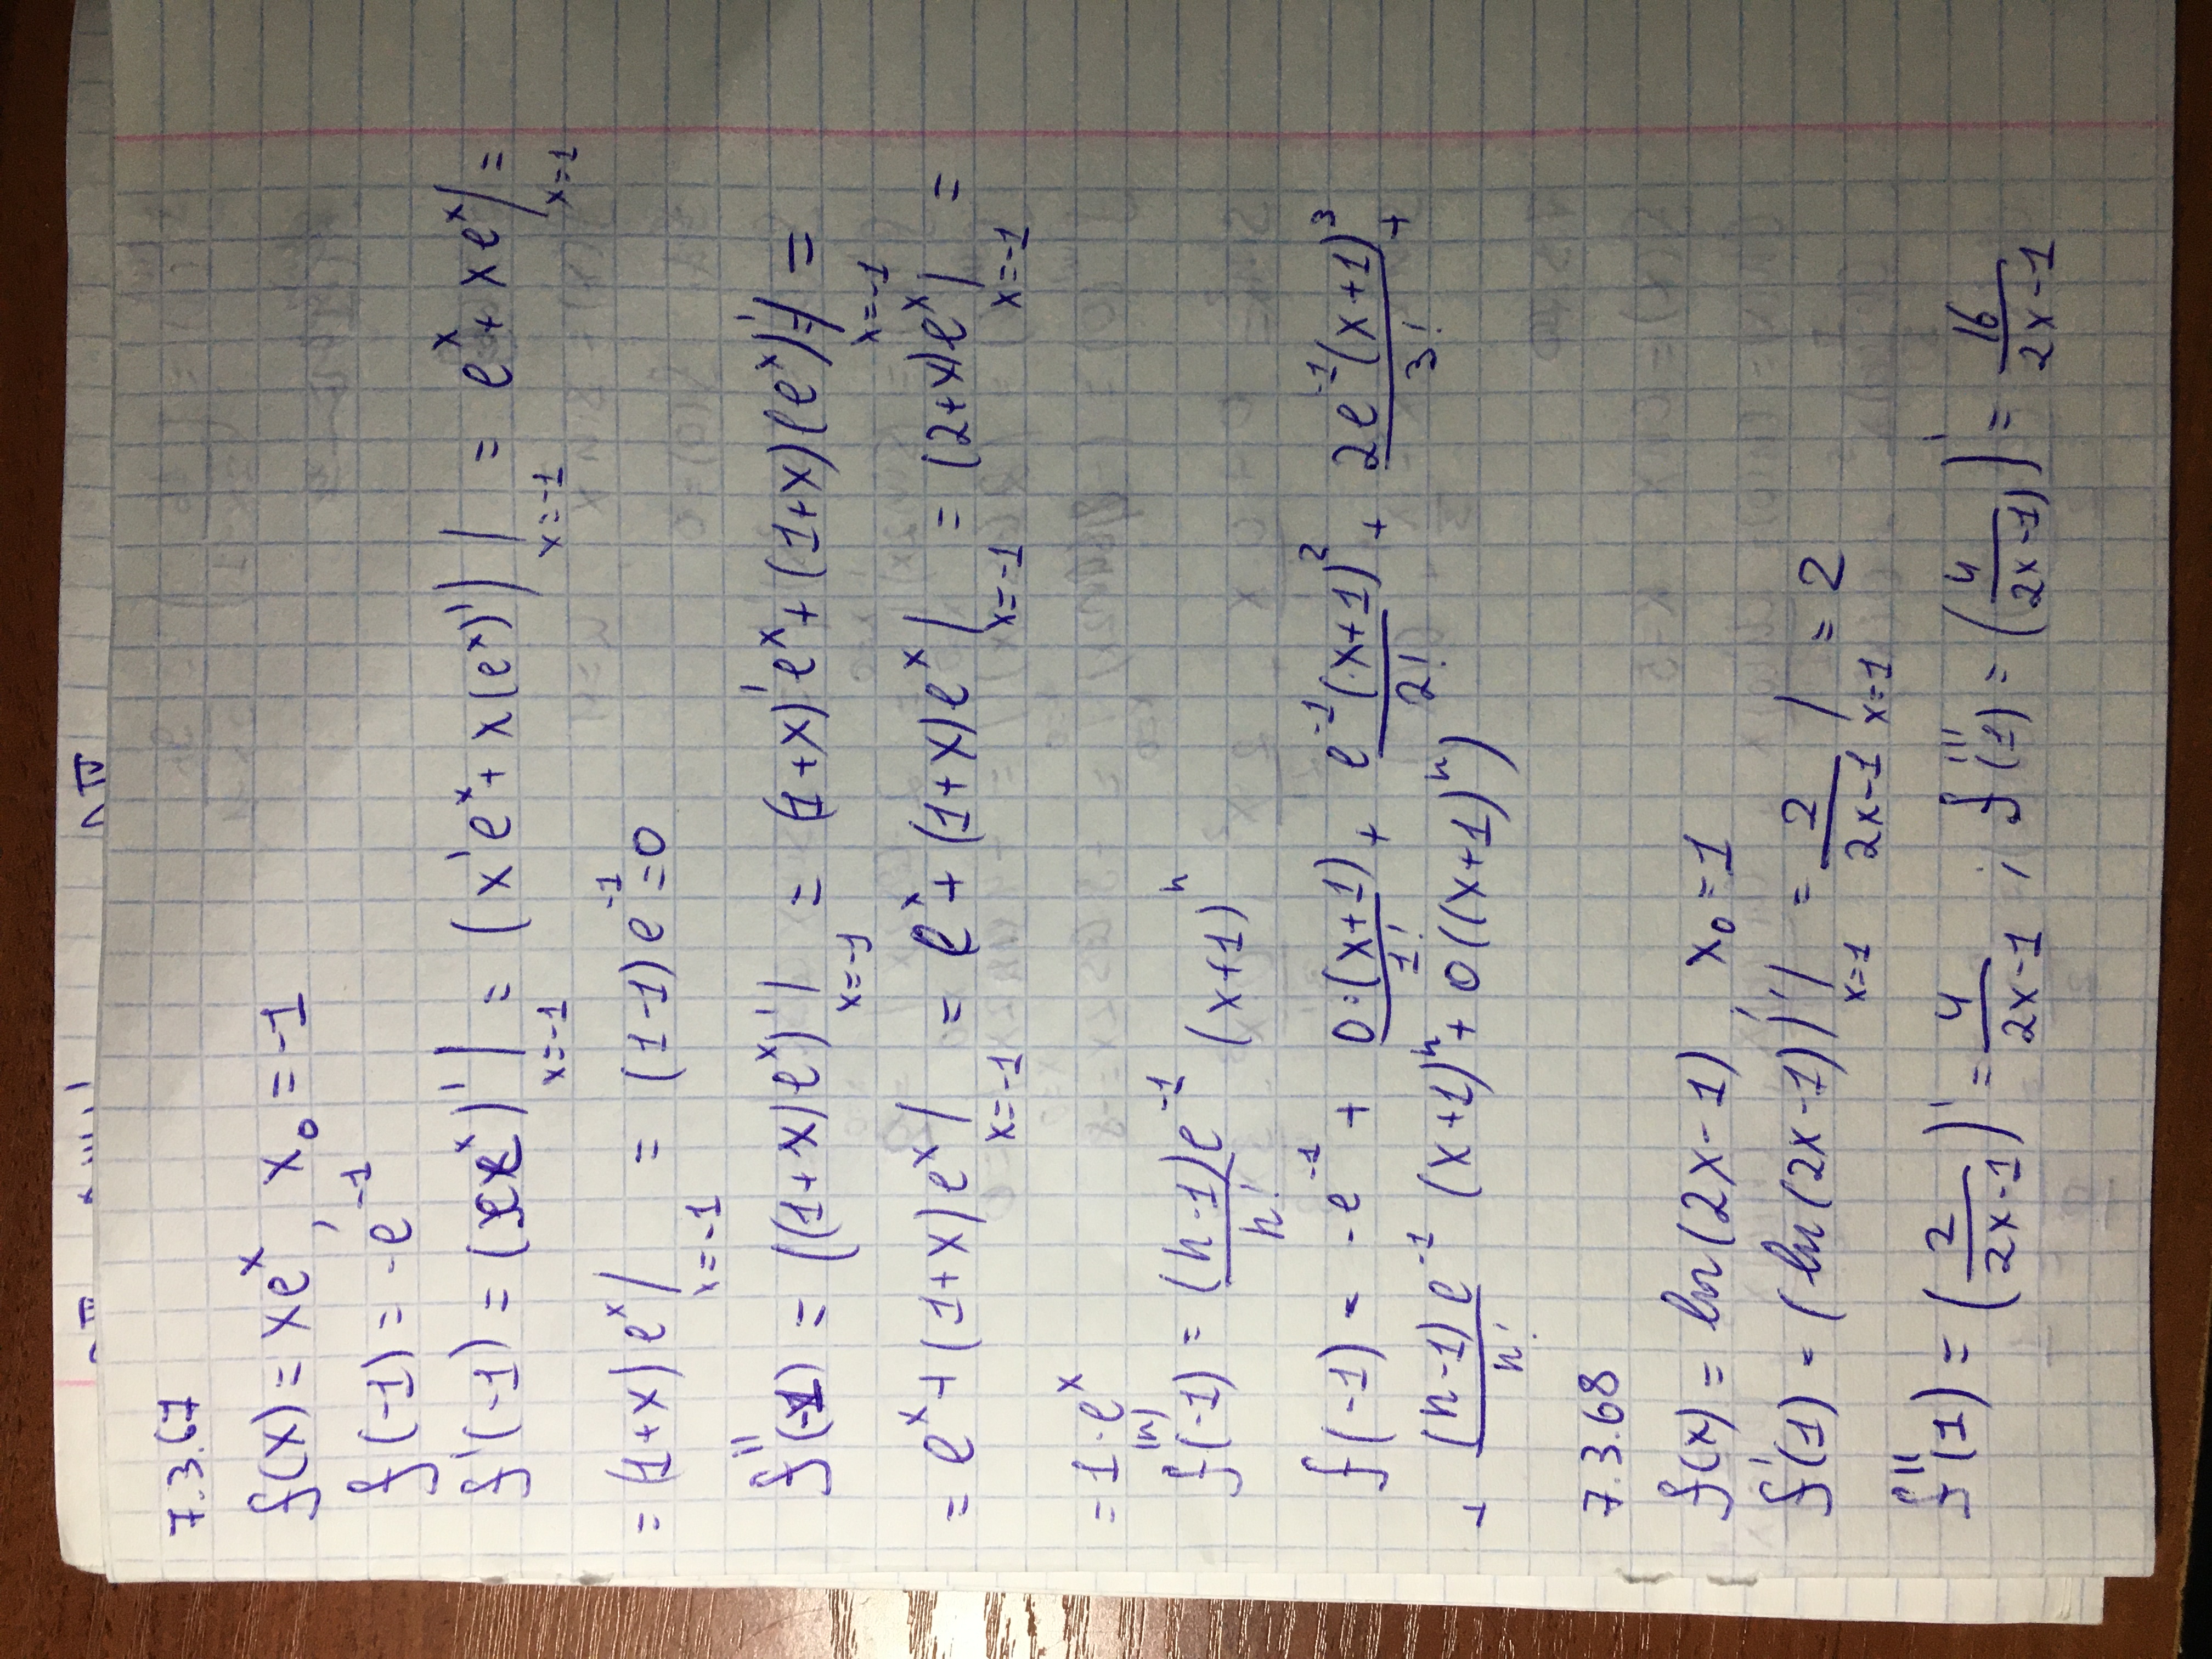 7.3.67
f(x) = xeˣ, x₀ = -1
f(-1) = -e⁻¹
f'(-1) = (xeˣ)'|ₓ₌₋₁ = (x'eˣ + x(eˣ)')|ₓ₌₋₁ = eˣ + xeˣ|ₓ₌₁ =
= (1+x)eˣ|ₓ₌₋₁ = (1-1)e⁻¹ = 0
f''(-1) = ((1+x)eˣ)'|ₓ₌₋₁ = (1+x)'eˣ + (1+x)(eˣ)'|ₓ₌₋₁ =
= eˣ + (1+x)eˣ|ₓ₌₋₁ = eˣ + (1+x)eˣ|ₓ₌₋₁ = (2+x)eˣ|ₓ₌₋₁ =
= 1·eˣ
f⁽ⁿ⁾(-1) = (n-1)e⁻¹/n! (x+1)ⁿ
f(-1) = -e⁻¹ + 0·(x+1)/1! + e⁻¹(x+1)²/2! + 2e⁻¹(x+1)³/3! +
+ (n-1)e⁻¹/n! (x+1)ⁿ + 0((x+1)ⁿ)
7.3.68
f(x) = ln(2x-1) x₀ = 1
f'(1) = (ln(2x-1))'|ₓ₌₁ = 2/(2x-1)|ₓ₌₁ = 2
f''(1) = (2/(2x-1))' = 4/(2x-1); f'''(1) = (4/(2x-1))' = 16/(2x-1)